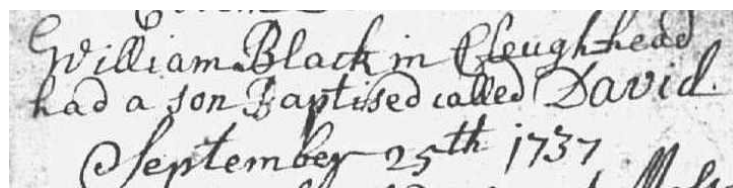 William Black in Cleughhead
had a son Baptised called David.
September 25th 1737